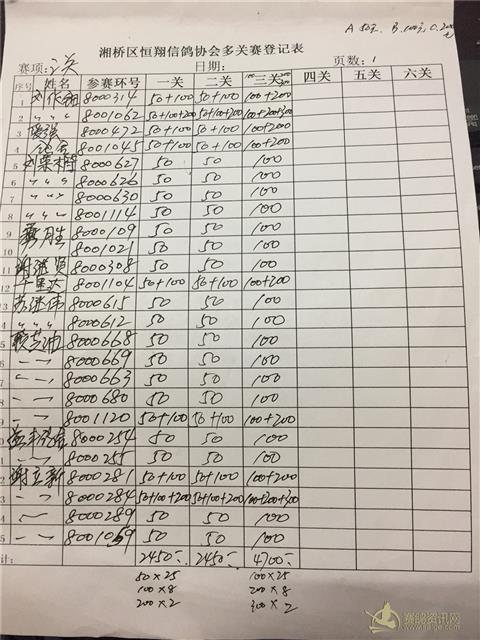 A 50元, B. 100元, C. 200元
湘桥区恒翔信鸽协会多关赛登记表
赛项: 三关 日期: 页数: 1
序号 姓名 参赛环号 一关 二关 三关 四关 五关 六关
1 8000314 50+100 50+100 100+200
2 〃 〃 〃 8001062 50+100+200 50+100+200 100+200+300
3 8000472 50+100 50+100 100+200
4 8001045 50+100 50+100 100+200
5 8000627 50 50 100
6 〃 〃 〃 8000626 50 50 100
7 〃 〃 〃 8000630 50 50 100
8 〃 〃 〃 8001114 50 50 100
9 8000109 50 50 100
10 8001021 50 50 100
11 谢继贤 8000308 50 50 100
12 8001104 50+100 50+100 100+200
13 苏继伟 8000615 50 50 100
〃 〃 〃 8000612 50 50 100
5 8000668 50 50 100
6 〃 〃 8000669 50 50 100
7 〃 〃 8000663 50 50 100
8 〃 〃 8000680 50 50 100
9 〃 〃 8001120 50+100 50+100 100+200
0 8000254 50 50 100
〃 〃 8000255 50 50 100
2 谢立新 8000281 50+100 50+100 100+200
3 〃 〃 8000284 50+100+200 50+100+200 100+200+300
4 〃 8000289 50 50 100
5 〃 〃 8001059 50 50 100
计: 2450 2450 4700
50×25 100×25
100×8 200×8
200×2 300×2
赛鸽资讯网